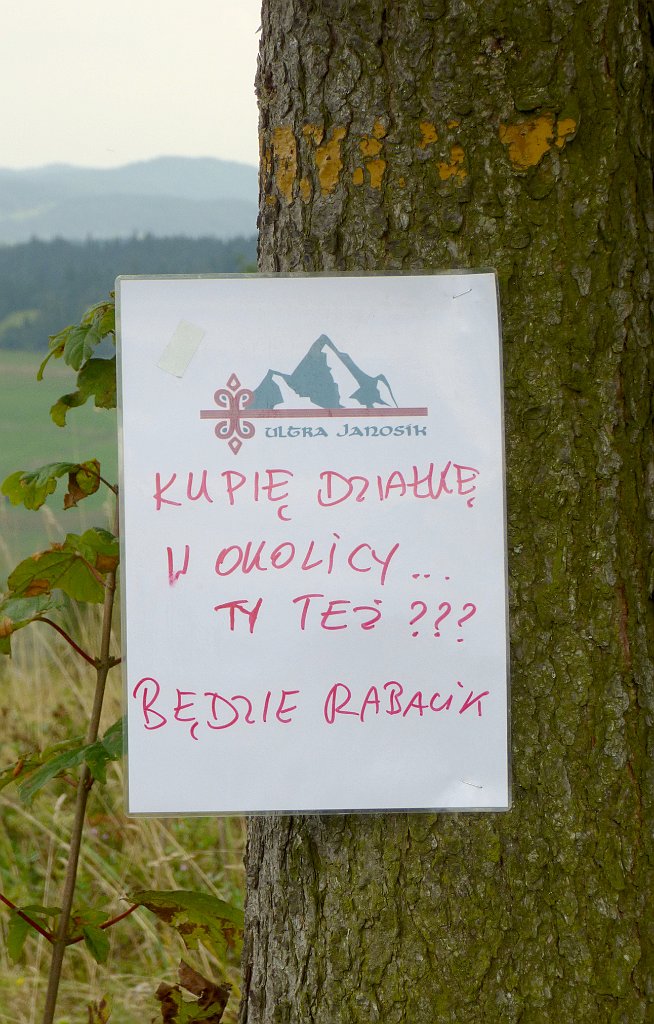 ULTRA JANOSIK
KUPIĘ DZIAŁKĘ
W OKOLICY...
TY TEŻ ???
BĘDZIE RABACIK